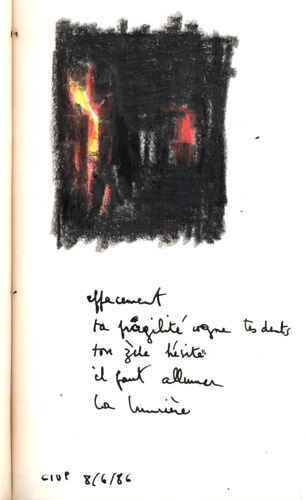 effacement
ta fragilité cogne tes dents
ton zèle hésite
il faut allumer
la lumière
CIUP 8/6/86